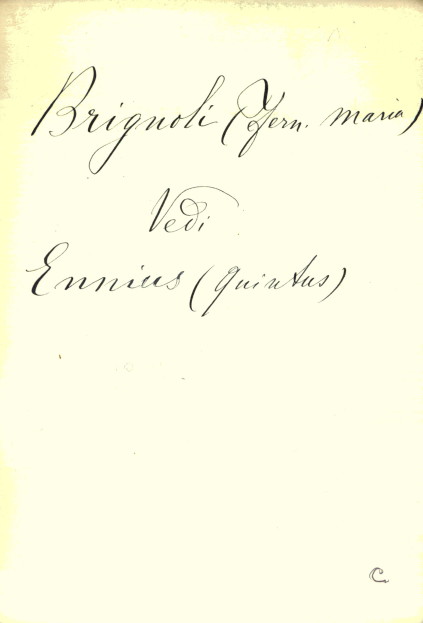 Brignoli (Fern. Maria)
Vedi
Ennius (Quintus)
C.